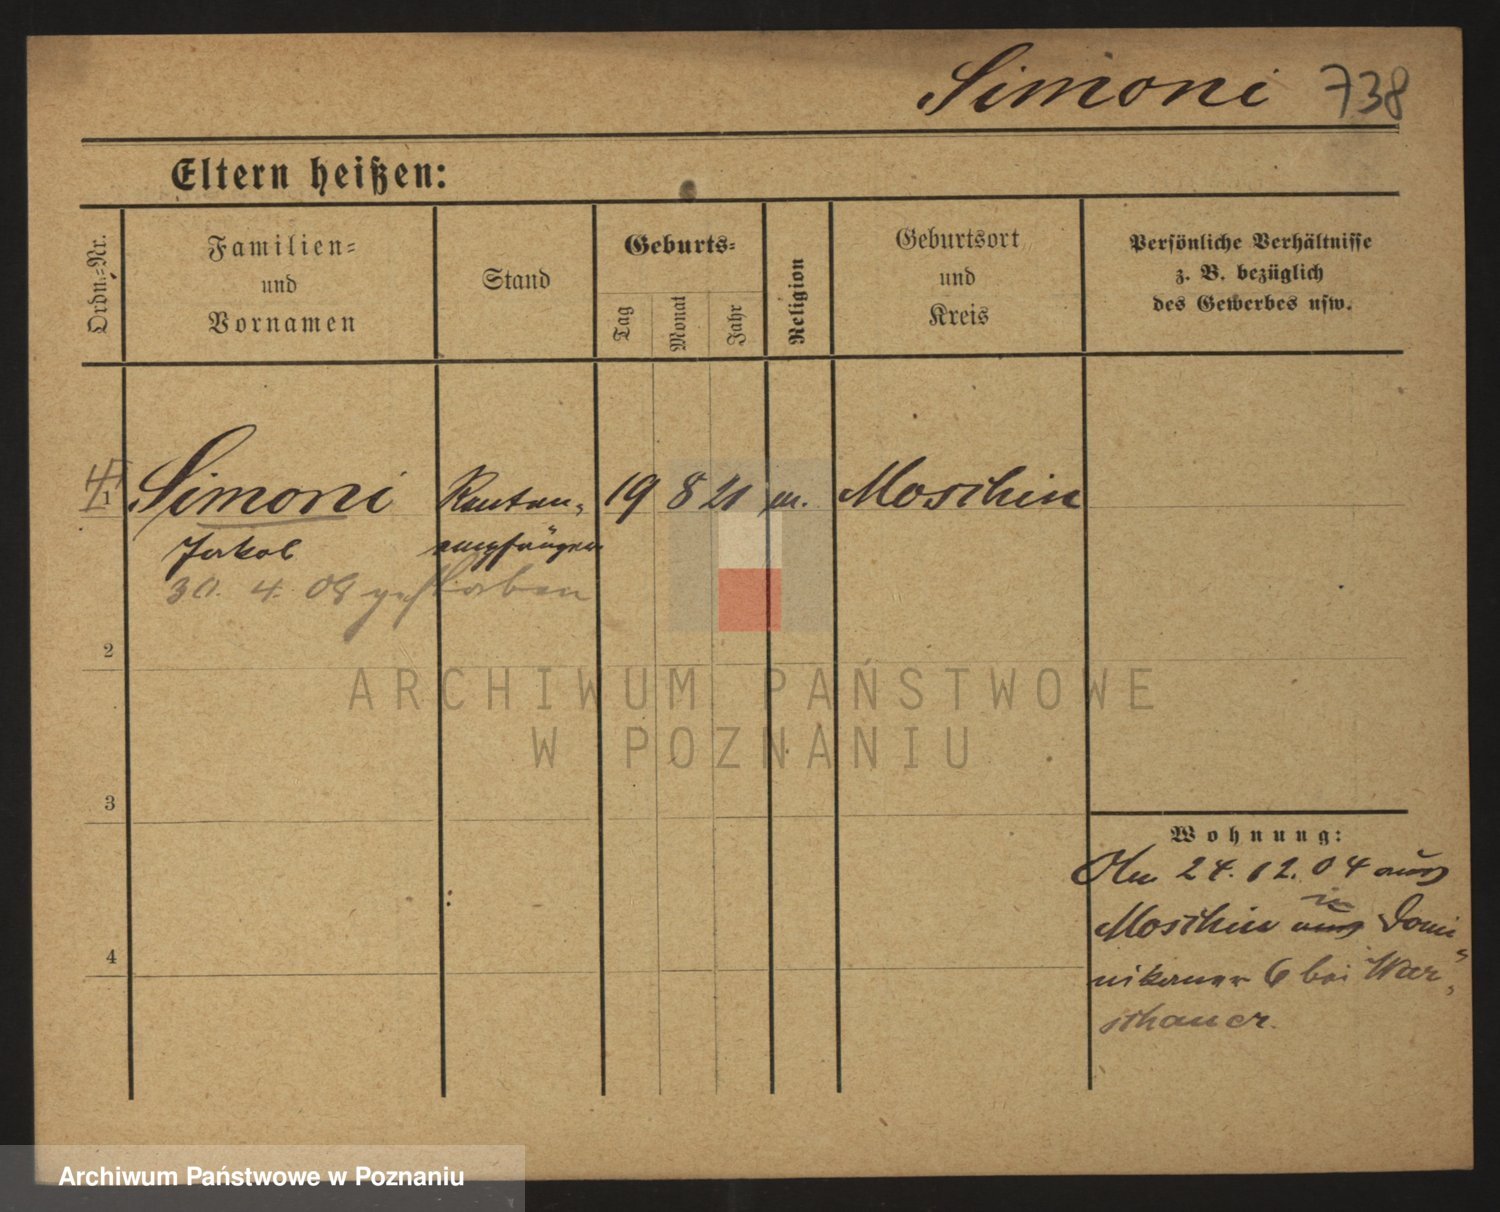 Simoni 738
Eltern heißen:
Ordn.-Nr.
Familien-
und
Vornamen
Stand
Geburts-
Tag
Monat
Jahr
Religion
Geburtsort
und
Kreis
Persönliche Verhältnisse
z. B. bezüglich
des Gewerbes usw.
1 Simoni Renten- 19 8 21 m. Moschin
Jakob empfänger
30. 4. 08 gestorben
2
3
4
Wohnung:
Am 24. 12. 04 aus
in
Moschin aus Domi-
nikaner 6 bei War-
schauer.
ARCHIWUM PAŃSTWOWE
W POZNANIU
Archiwum Państwowe w Poznaniu